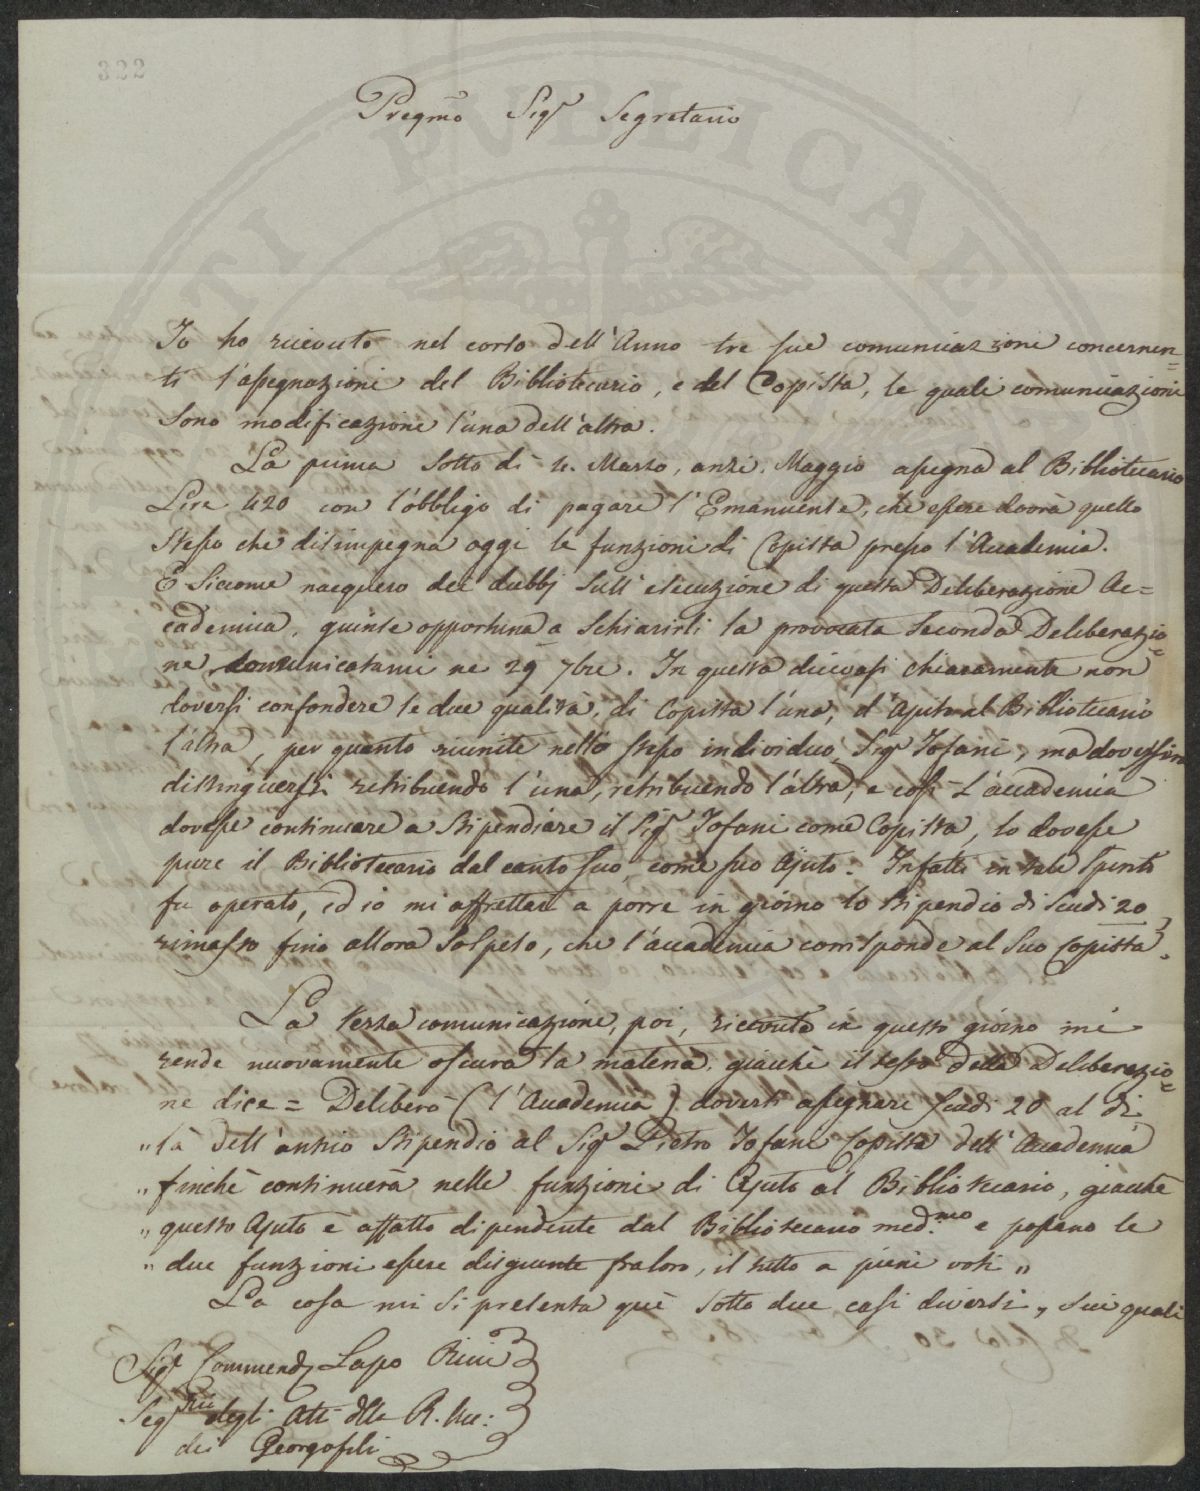 322
Pregmo Sigr Segretario
Io ho ricevuto nel corso dell'Anno tre sue comunicazioni concernen=
ti l'assegnazioni del Bibliotecario, e del Copista, le quali comunicazioni
sono modificazione l'una dell'altra.
La prima sotto dì 4. Marzo, anzi, Maggio assegna al Bibliotecario
Lire 420 con l'obbligo di pagare l'Emanuente, che essere dovrà quello
stesso che disimpegna oggi le funzioni di Copista presso l'Accademia.
E siccome nacquero dei dubbj sull'esecuzione di questa Deliberazione Ac=
cademica, giunse opportuna a schiarirli la provocata seconda Deliberazio=
ne comunicatami ne 29 7bre. In questa dicevasi chiaramente non
doversi confondere le due qualità, di Copista l'una, d'Ajuto al Bibliotecario
l'altra, per quanto riunite nello stesso individuo, Sigr Tofani, ma dovessero
distinguersi retribuendo l'una, retribuendo l'altra, e così L'accademia
dovesse continuare a stipendiare il Sigr Tofani come Copista, lo dovesse
pure il Bibliotecario dal canto suo come suo Ajuto. Infatti in tale spirito
fu operato, ed io mi affrettai a porre in giorno lo stipendio di scudi 20
rimasto fino allora sospeso, che l'accademia corrisponde al suo Copista.
La terza comunicazione, poi, ricevuta in questo giorno mi
rende nuovamente oscura la materia, giacchè il testo della Deliberazio=
ne dice = Deliberò (l'Accademia) doversi assegnare scudi 20 al di
"là dell'antico stipendio al Sigr Pietro Tofani Copista dell'Accademia
"finchè continuerà nelle funzioni di Ajuto al Bibliotecario, giacchè
"questo Ajuto è affatto dipendente dal Bibliotecario med.mo e possano le
"due funzioni essere disgiunte fra loro, il tutto a pieni voti"
La cosa mi si presenta quì sotto due casi diversi, sui quali
Sigr Commendr Lapo Ricci
Segrrio degli Atti della R. Acc:
dei Georgofili